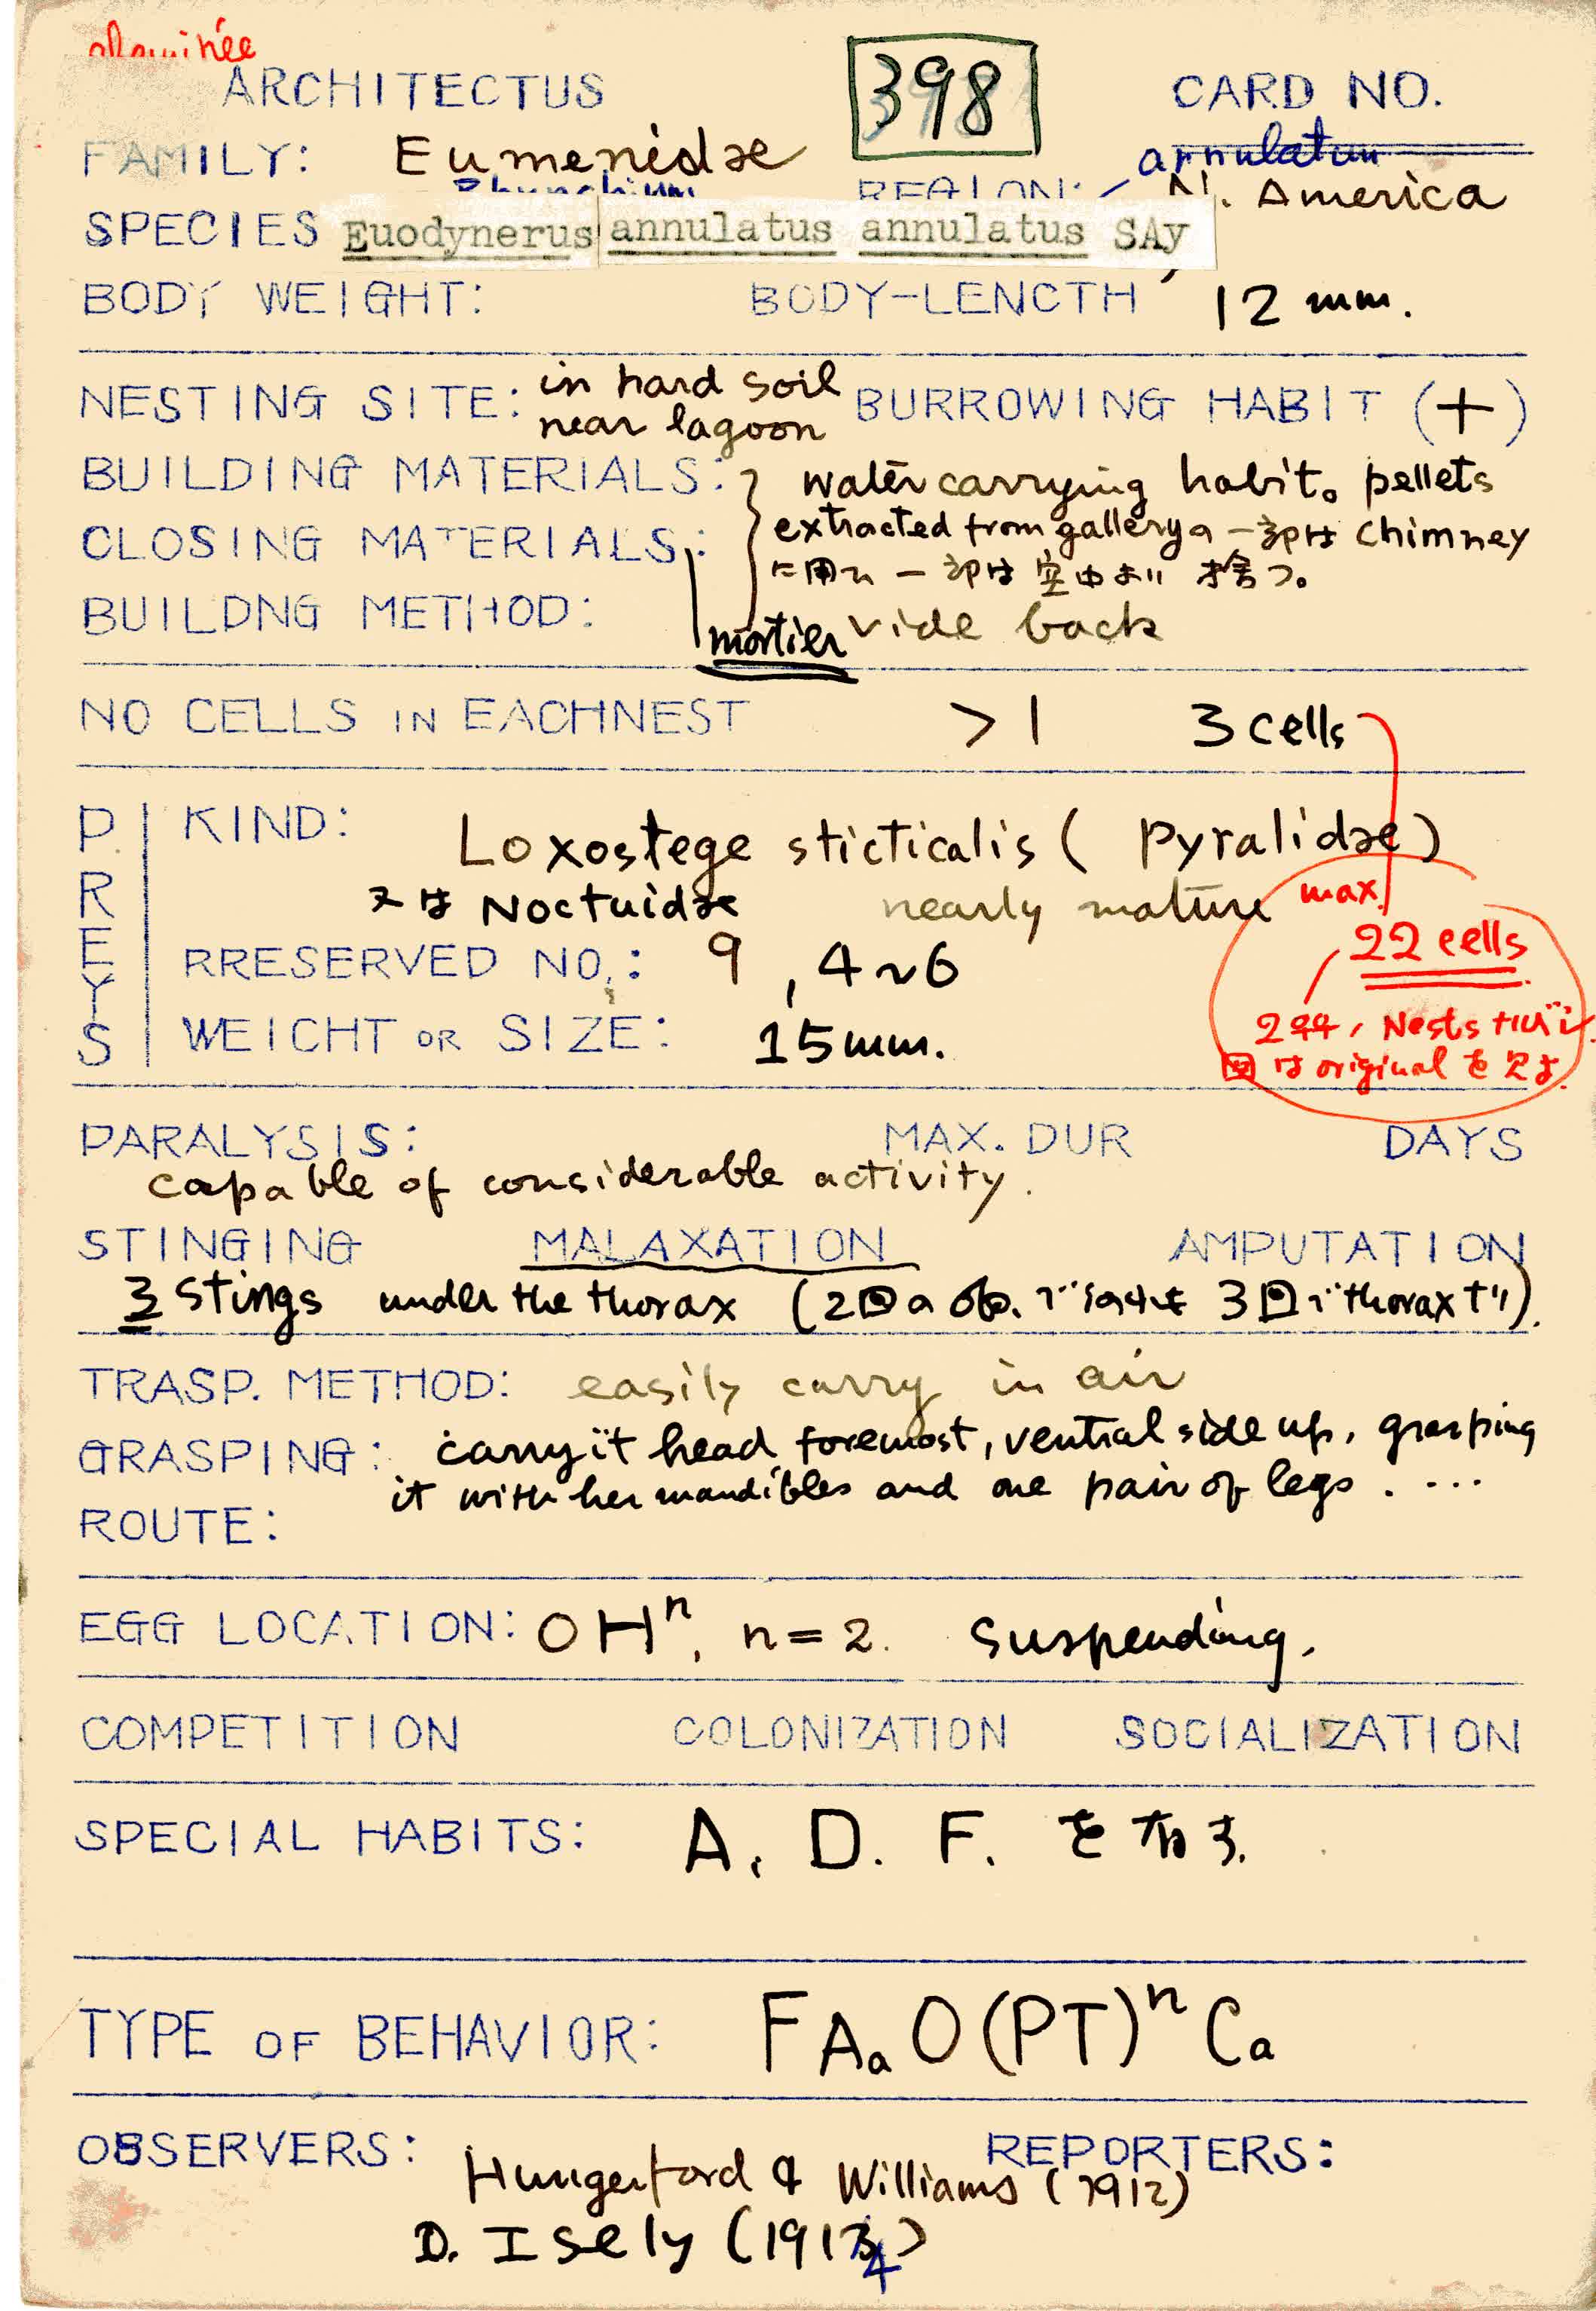 cheminée
ARCHITECTUS 398 CARD NO.
FAMILY: Eumenidae annulatum
REGION: N. America
SPECIES Euodynerus annulatus annulatus SAy
BODY WEIGHT: BODY-LENGTH 12 mm.
NESTING SITE: in hard soil near lagoon BURROWING HABIT (+)
BUILDING MATERIALS: water carrying habit。 pellets
CLOSING MATERIALS: extracted from gallery の一部は chimney
に用ひ 一部は空中より捨つ。
BUILDNG METHOD: mortier vide back
NO CELLS IN EACHNEST >1 3 cells
PREYS
KIND: Loxostege sticticalis ( Pyralidae )
又は Noctuidae nearly mature max.
22 cells
RRESERVED NO.: 9 , 4~6
WEIGHT OR SIZE: 15 mm.
2♀♀, Nests
図は original を見よ.
PARALYSIS: MAX. DUR DAYS
capable of considerable activity.
STINGING MALAXATION AMPUTATION
3 Stings under the thorax (2回の ob. 3回 thorax
TRASP. METHOD: easily carry in air
GRASPING: carry it head foremost, ventral side up, grasping
it with her mandibles and one pair of legs . ...
ROUTE:
EGG LOCATION: OHⁿ, n=2. Suspending.
COMPETITION COLONIZATION SOCIALIZATION
SPECIAL HABITS: A. D. F. を有する.
TYPE OF BEHAVIOR: FAₐO(PT)ⁿCₐ
OBSERVERS: REPORTERS:
Hungerford & Williams (1912)
D. Isely (1914)